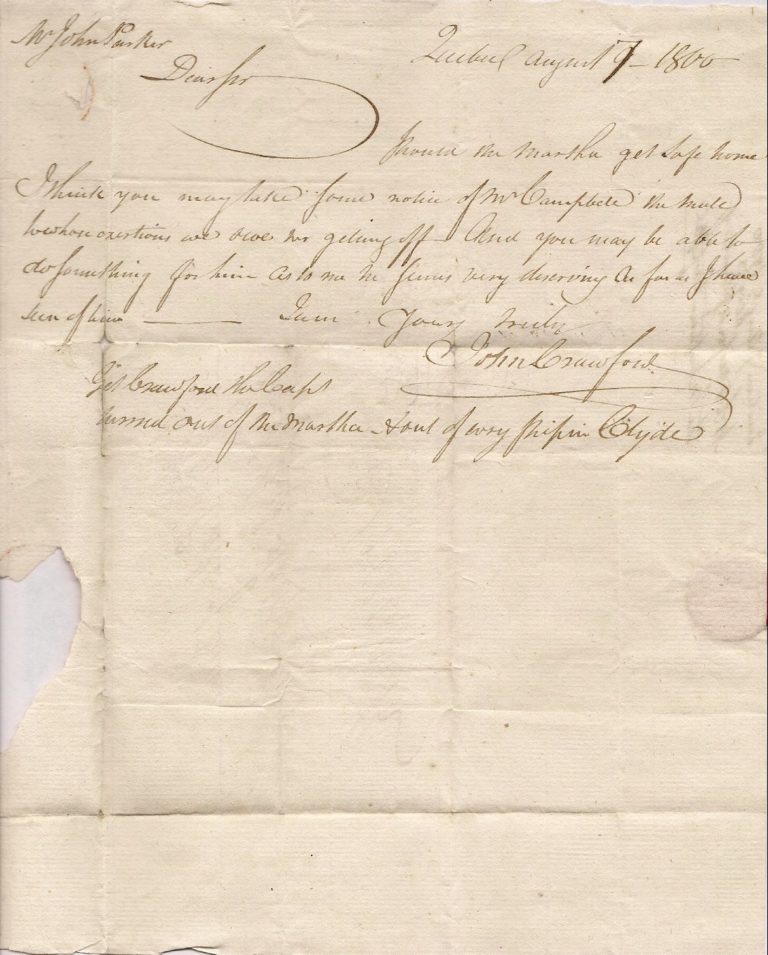 Mr John Parker
Quebec August 7 - 1800
Dear Sir
Should the Martha get safe home
I think you may take some notice of Mr Campbell the mate
to whose exertions we owe her getting off - And you may be able to
do something for him - as to me he seems very deserving as far as I have
seen of him - I am Yours truly
John Crawford
Get Crawford the Capt
turned out of the Martha & out of every ship in Clyde